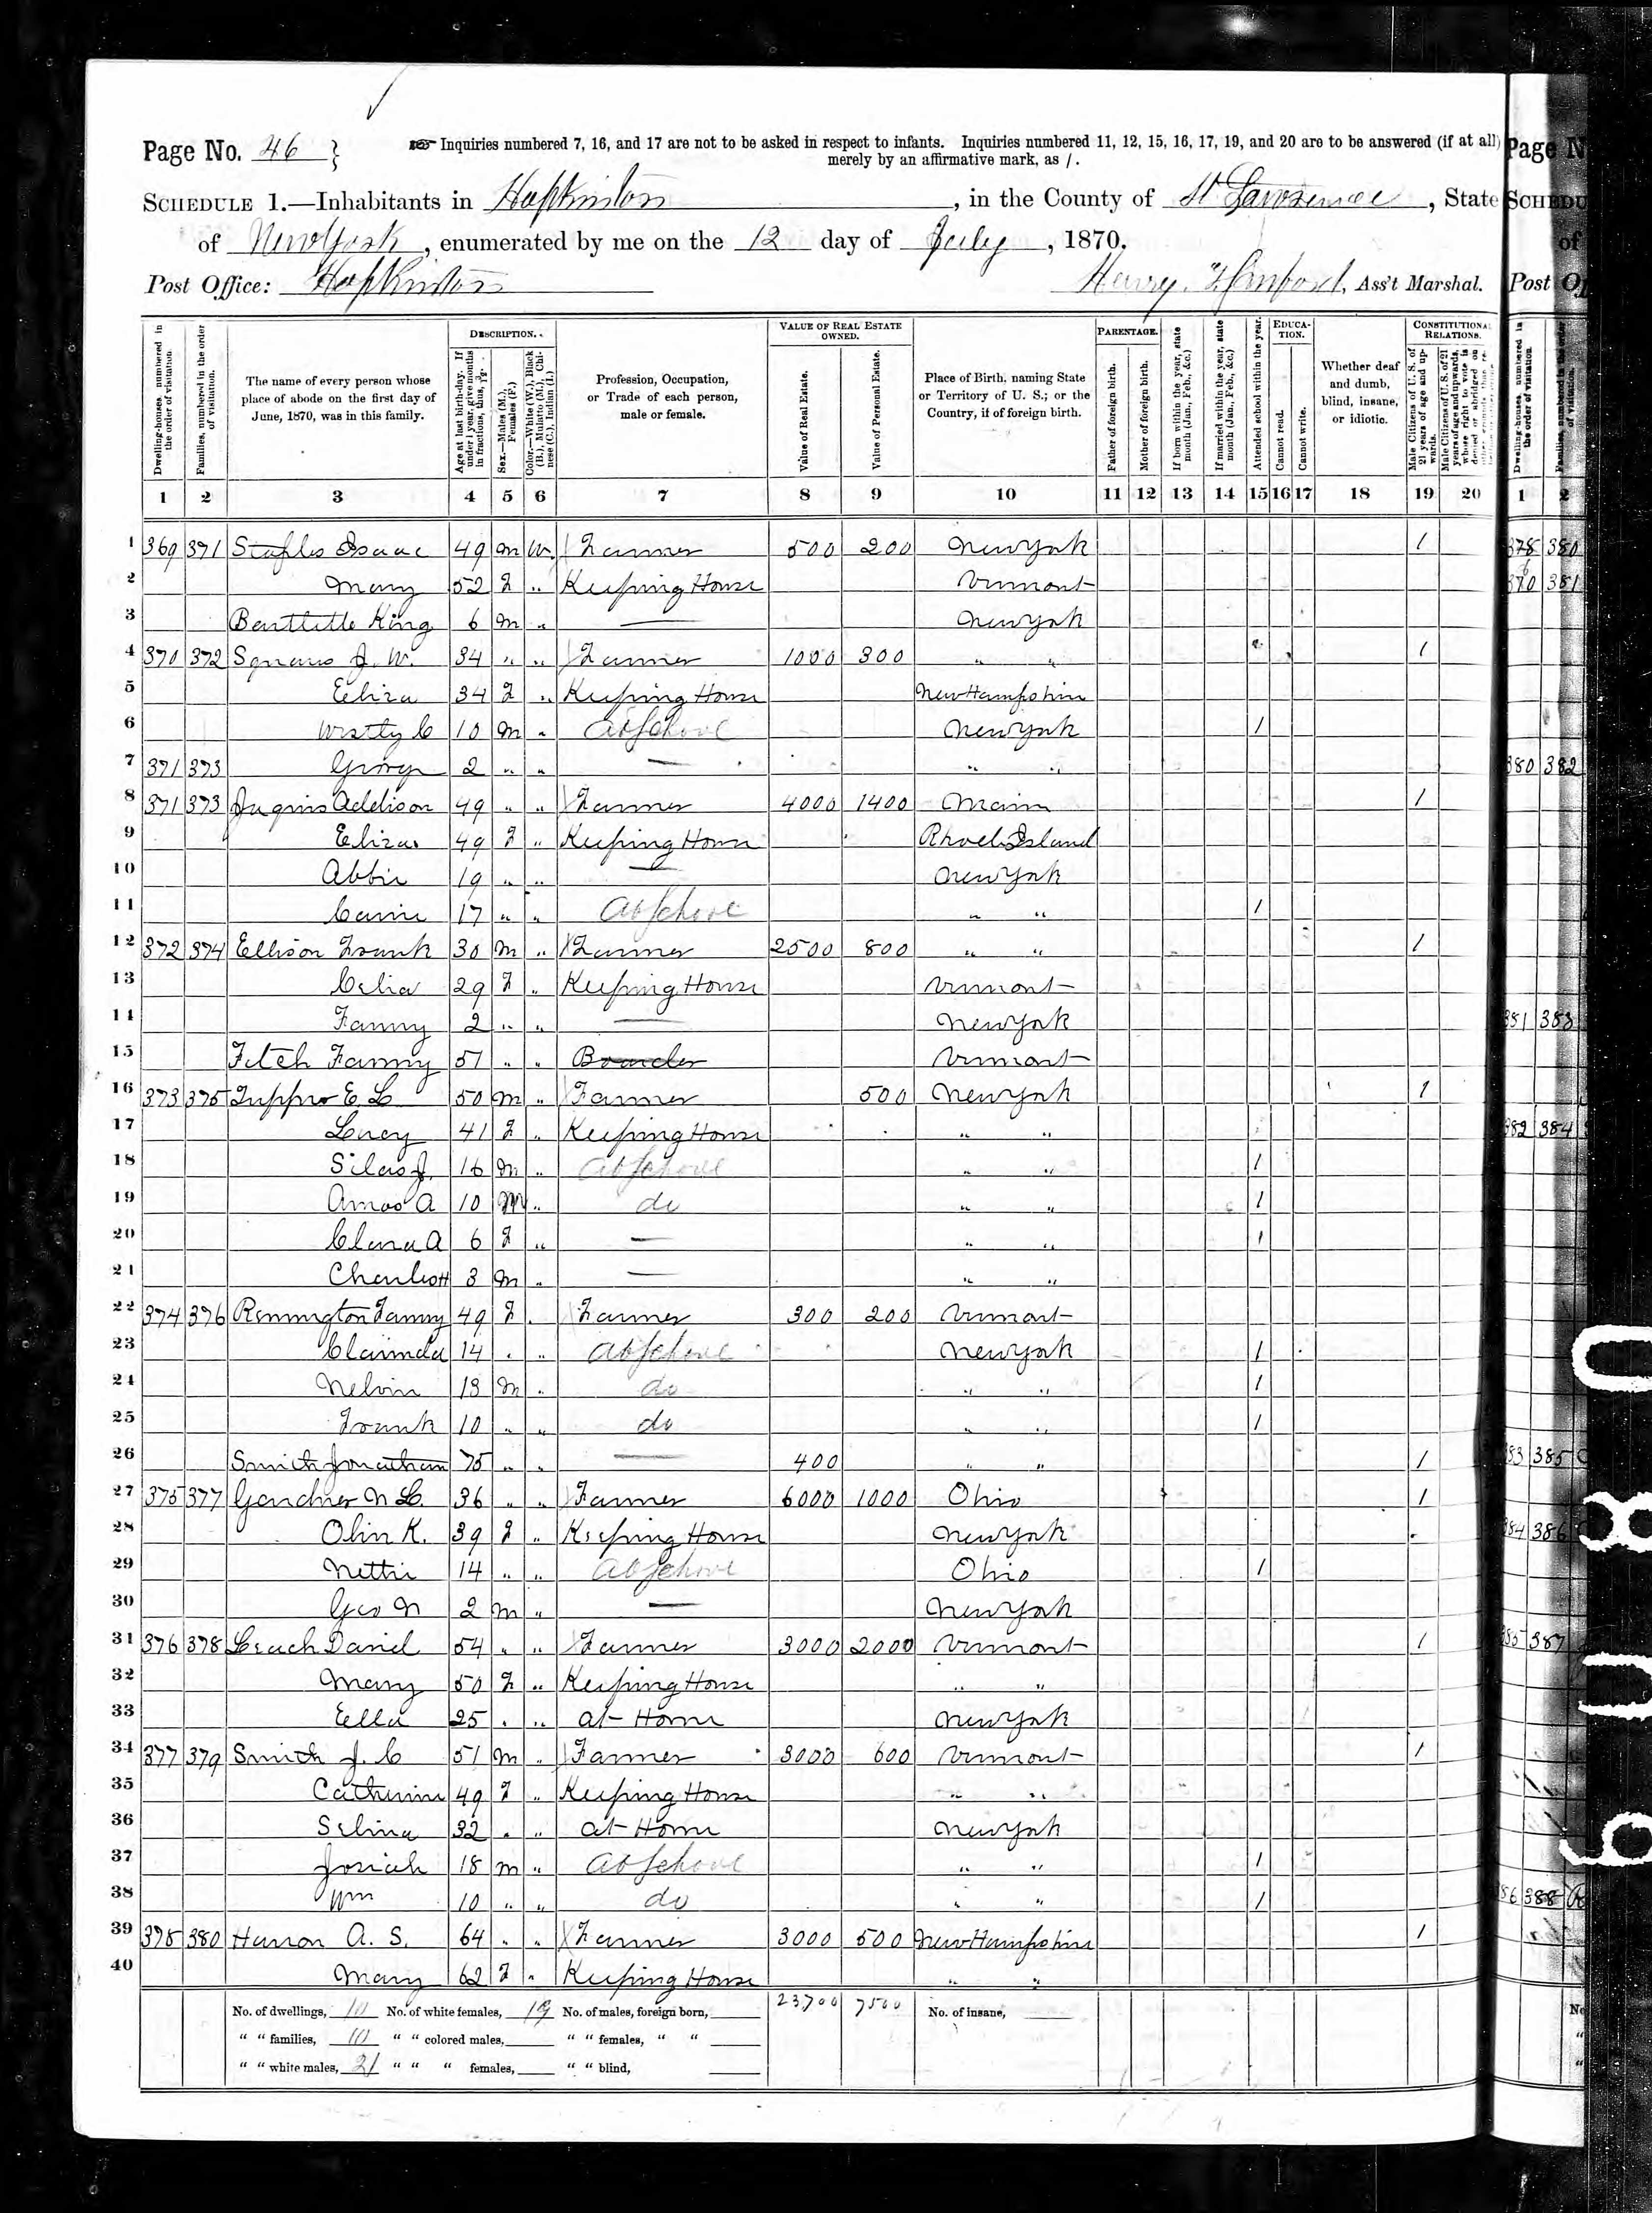 Page No. 46 } Inquiries numbered 7, 16, and 17 are not to be asked in respect to infants. Inquiries numbered 11, 12, 15, 16, 17, 19, and 20 are to be answered (if at all)
merely by an affirmative mark, as /.
SCHEDULE 1.—Inhabitants in Hopkinton, in the County of St Lawrence, State
of New York, enumerated by me on the 12 day of July, 1870.
Post Office: Hopkinton Ass't Marshal.
DESCRIPTION. VALUE OF REAL ESTATE OWNED. PARENTAGE. EDUCATION. CONSTITUTIONAL RELATIONS.
Dwelling-houses, numbered in the order of visitation.
Families, numbered in the order of visitation.
The name of every person whose place of abode on the first day of June, 1870, was in this family.
Age at last birth-day. If under 1 year, give months in fractions, thus, 3/12.
Sex.—Males (M.), Females (F.)
Color.—White (W.), Black (B.), Mulatto (M.), Chinese (C.), Indian (I.)
Profession, Occupation, or Trade of each person, male or female.
Value of Real Estate.
Value of Personal Estate.
Place of Birth, naming State or Territory of U. S.; or the Country, if of foreign birth.
Father of foreign birth.
Mother of foreign birth.
If born within the year, state month (Jan., Feb., &c.)
If married within the year, state month (Jan., Feb., &c.)
Attended school within the year.
Cannot read.
Cannot write.
Whether deaf and dumb, blind, insane, or idiotic.
Male Citizens of U. S. of 21 years of age and upwards.
1 2 3 4 5 6 7 8 9 10 11 12 13 14 15 16 17 18 19 20
1 369 371 Staples Isaac 49 M W. Farmer 500 200 New York /
2 Mary 52 F " Keeping House Vermont
3 Bartlette King 6 M " — New York
4 370 372 J. W. 34 " " Farmer 1000 300 " " /
5 Eliza 34 F " Keeping House New Hampshire
6 C 10 M " At School New York /
7 371 373 George 2 " " — " "
8 371 373 Addison 49 " " Farmer 4000 1400 Maine /
9 Eliza 49 F " Keeping House Rhode Island
10 Abbie 19 " " — New York
11 Carrie 17 " " At School " " /
12 372 374 Ellison Frank 30 M " Farmer 2500 800 " " /
13 Celia 29 F " Keeping House Vermont
14 Fanny 2 " " — New York
15 Fitch Fanny 51 " " Boarder Vermont
16 373 375 Tupper E. L 50 M " Farmer 500 New York /
17 Lucy 41 F " Keeping House " "
18 Silas J. 16 M " At School " " /
19 Amos A 10 M " do " " /
20 Clara A 6 F " — " " /
21 Charles H 3 M " — " "
22 374 376 Remmington Fanny 49 F " Farmer 300 200 Vermont
23 Clarinda 14 " " At School New York /
24 Melvin 13 M " do " " /
25 Frank 10 " " do " " /
26 Smith Jonathan 75 " " — 400 " " /
27 375 377 Gardner N L. 36 " " Farmer 6000 1000 Ohio /
28 K. 39 F " Keeping House New York
29 Nettie 14 " " At School Ohio /
30 Geo N 2 M " — New York
31 376 378 Leach Daniel 54 " " Farmer 3000 2000 Vermont /
32 Mary 50 F " Keeping House " "
33 Ella 25 " " at Home New York
34 377 379 Smith J. C 51 M " Farmer 3000 600 Vermont /
35 Catherine 49 F " Keeping House " "
36 Selina 32 " " at Home New York
37 Josiah 18 M " At School " " /
38 Wm 10 " " do " " /
39 378 380 A. S. 64 " " Farmer 3000 500 New Hampshire /
40 Mary 62 F " Keeping House " "
No. of dwellings, 10 No. of white females, 19 No. of males, foreign born, 23,700 7500 No. of insane,
" " families, 10 " " colored males, " " females, " "
" " white males, 21 " " " females, " " blind,